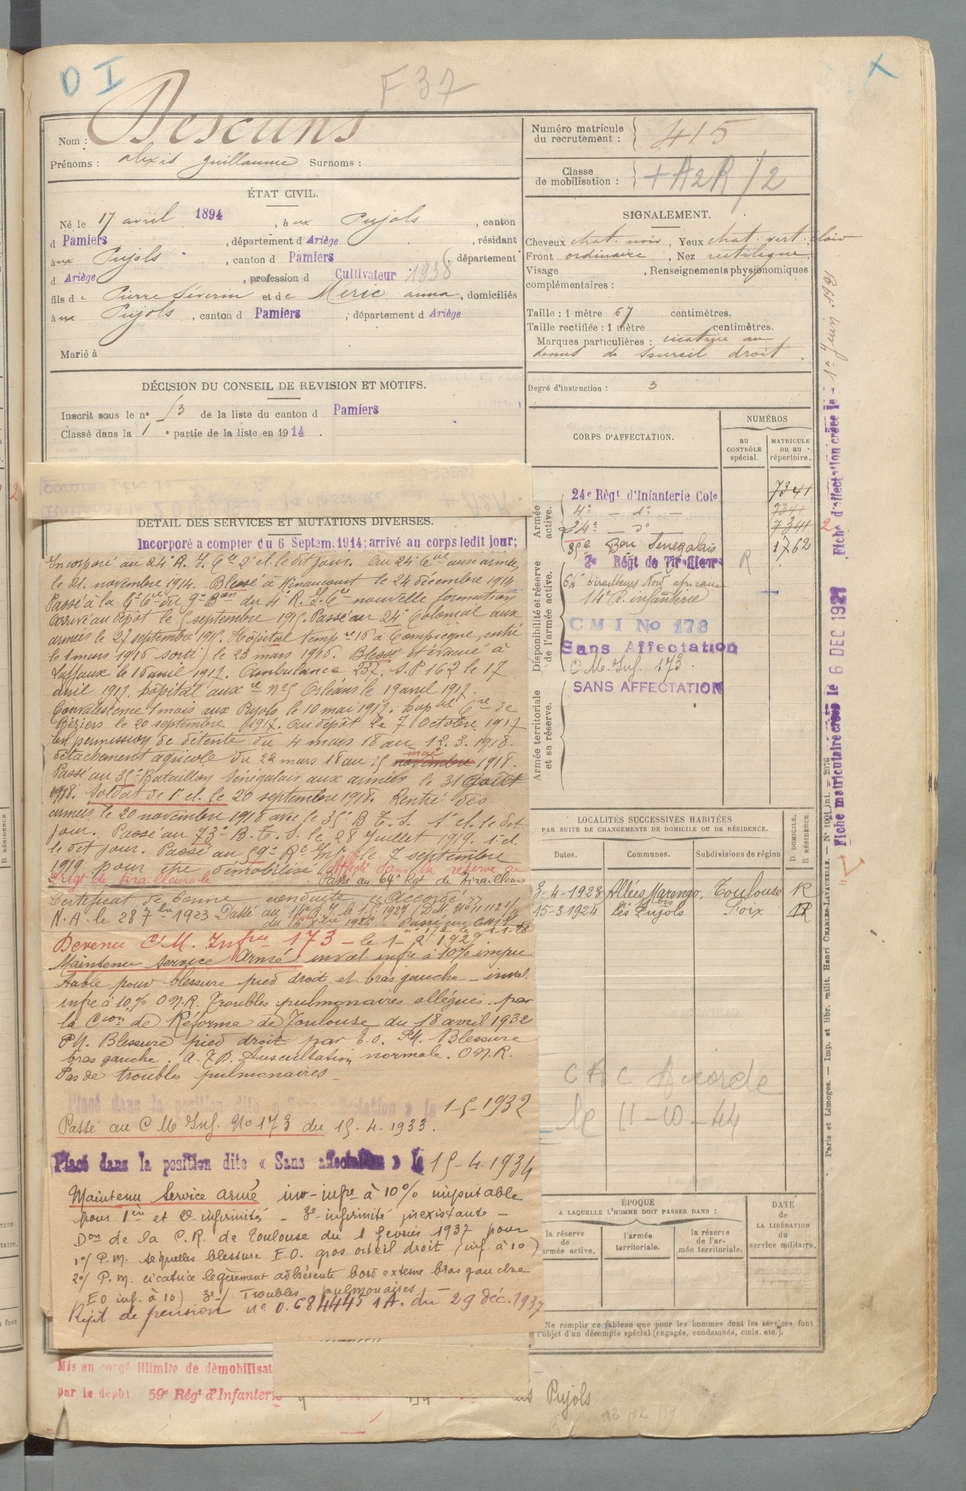 D I
F 37
X
Nom : Descuns
Prénoms : Alexis Guillaume Surnoms :
Numéro matricule du recrutement : 415
Classe de mobilisation : + A2R/2
ÉTAT CIVIL.
Né le 17 avril 1894, à ux Pujols, canton
d Pamiers, département d Ariège, résidant
à ux Pujols, canton d Pamiers, département
d Ariège, profession d Cultivateur 1938
fils de Pierre Séverin et de Méric Anna, domiciliés
à ux Pujols, canton d Pamiers, département d Ariège
Marié à
SIGNALEMENT.
Cheveux chat. noir, Yeux chat. vert clair
Front ordinaire, Nez rectiligne
Visage , Renseignements physionomiques
complémentaires :
Taille : 1 mètre 67 centimètres.
Taille rectifiée : 1 mètre centimètres.
Marques particulières : cicatrice au
dessus de sourcil droit.
Degré d'instruction : 3
DÉCISION DU CONSEIL DE REVISION ET MOTIFS.
Inscrit sous le n° 53 de la liste du canton d Pamiers
Classé dans la 1e partie de la liste en 1914.
CORPS D'AFFECTATION.
NUMÉROS
AU CONTRÔLE spécial.
MATRICULE ou au répertoire.
Armée active.
24e Régt d'Infanterie Cole 7341
4e - do - 7341
24e - do 7341
35e Bon Sénégalais 1762
Disponibilité et réserve de l'armée active.
2e Régt de Tirailleurs R
64e Tirailleurs Nord africains
14e R. infanterie
CMI No 173
Sans Affectation
C.M. Inf. 173
Armée territoriale et sa réserve.
SANS AFFECTATION
DÉTAIL DES SERVICES ET MUTATIONS DIVERSES.
Incorporé a compter du 6 Septem. 1914; arrivé au corps ledit jour;
Incorporé au 24e R. I. Cle 2e cl. le dit jour. Au 24e Cal aux armées
le 21 novembre 1914. Blessé à Minaucourt le 24 décembre 1914
Passé à la 9e Cie du 9e Bon du 4e R.I.Cle nouvelle formation
Arrivé au dépôt le 5 septembre 1915. Passé au 24e Colonial aux
armées le 25 septembre 1915. Hôpital temp. re 16 à Compiègne, entré
le 1 mars 1916 sorti le 23 mars 1916. Blessé et évacué à
Laffaux le 16 avril 1917. Ambulance 237. S.P 162 le 17
avril 1917. hôpital aux re no 5 Orléans le 19 avril 1917.
Convalescence 1 mois aux Pujols le 10 mai 1917. hop tal Cre de
Béziers le 20 septembre 1917. Au dépôt le 7 Octobre 1917
En permission de détente du 4 mars 18 au 12.3.1918.
Détachement agricole du 22 mars 18 au 15 novembre mai 1918.
Passé au 35e Bataillon Sénégalais aux armées le 31 août
1918. Soldat de 1e cl. le 20 septembre 1918. Rentré des
armées le 20 novembre 1918 avec le 35e B T S. 1e cl. le dit
jour. Passé au 73e B. T. S. le 28 juillet 1919. 1e cl.
le dit jour. Passé au 59e Rt Infie le 7 septembre
1919 pour être démobilisé. Affecté dans la réserve au
Régt de Tirailleurs le Passé au 64e Rgt de Tirailleurs
Certificat de bonne conduite "Accordé".
N. A. le 28 7bre 1923
Devenu C.M. Infrie 173 - le 1-5 1929
Maintenu Service Armé inval. infre à 10% impu
table pour blessure pied droit et bras gauche - inval.
infre à 10% O.N.R. Troubles pulmonaires allégués. par
la Cion de Réforme de Toulouse du 18 avril 1932
PM. Blessure pied droit par E.O. PM. Blessure
bras gauche. A.T.P. Auscultation normale. O.N.R.
Pas de troubles pulmonaires -
Placé dans la position dite « Sans affectation » le 1-5-1932
Passé au C M Inf. No 173 du 15-4.1933.
Placé dans la position dite « Sans affectation » le 15-4.1934
Maintenu Service armé inv-infre à 10% imputable
pour 1ère et 2e infirmités - 3e infirmité inexistante -
Don de la C.R. de Toulouse du 1 février 1937 pour
1°/ P.M. séquelles blessure E.O. gros orteil droit (inf. à 10)
2°/ P.M. cicatrice légèrement adhérente bord externe bras gauche
E O inf. à 10) 3°/ Troubles pulmonaires
Rejet de pension n° 0.684445 1A. du 29 déc. 1937
Mis en congé illimité de démobilisat
par le dépôt 59e Régt d'Infanterie
Pujols
LOCALITÉS SUCCESSIVES HABITÉES
PAR SUITE DE CHANGEMENTS DE DOMICILE OU DE RÉSIDENCE.
Dates. Communes. Subdivisions de région D. DOMICILE. R. RÉSIDENCE.
3-4-1928 Allées Marengo, Toulouse R
15-3.1924 Les Pujols Foix R
CAC Accorde
le 11-10-44
ÉPOQUE
A LAQUELLE L'HOMME DOIT PASSER DANS :
la réserve de l'armée active.
l'armée territoriale.
la réserve de l'armée territoriale.
DATE de LA LIBÉRATION du service militaire.
Ne remplir ce tableau que pour les hommes dont les services font
l'objet d'un décompte spécial (engagés, condamnés, omis, etc.).
Fiche matriculaire créée le 6 DEC 1927
Fiche d'affectation créée le 1er Juin 1921
Paris et Limoges. — Imp. et libr. milit. Henri CHARLES-LAVAUZELLE.